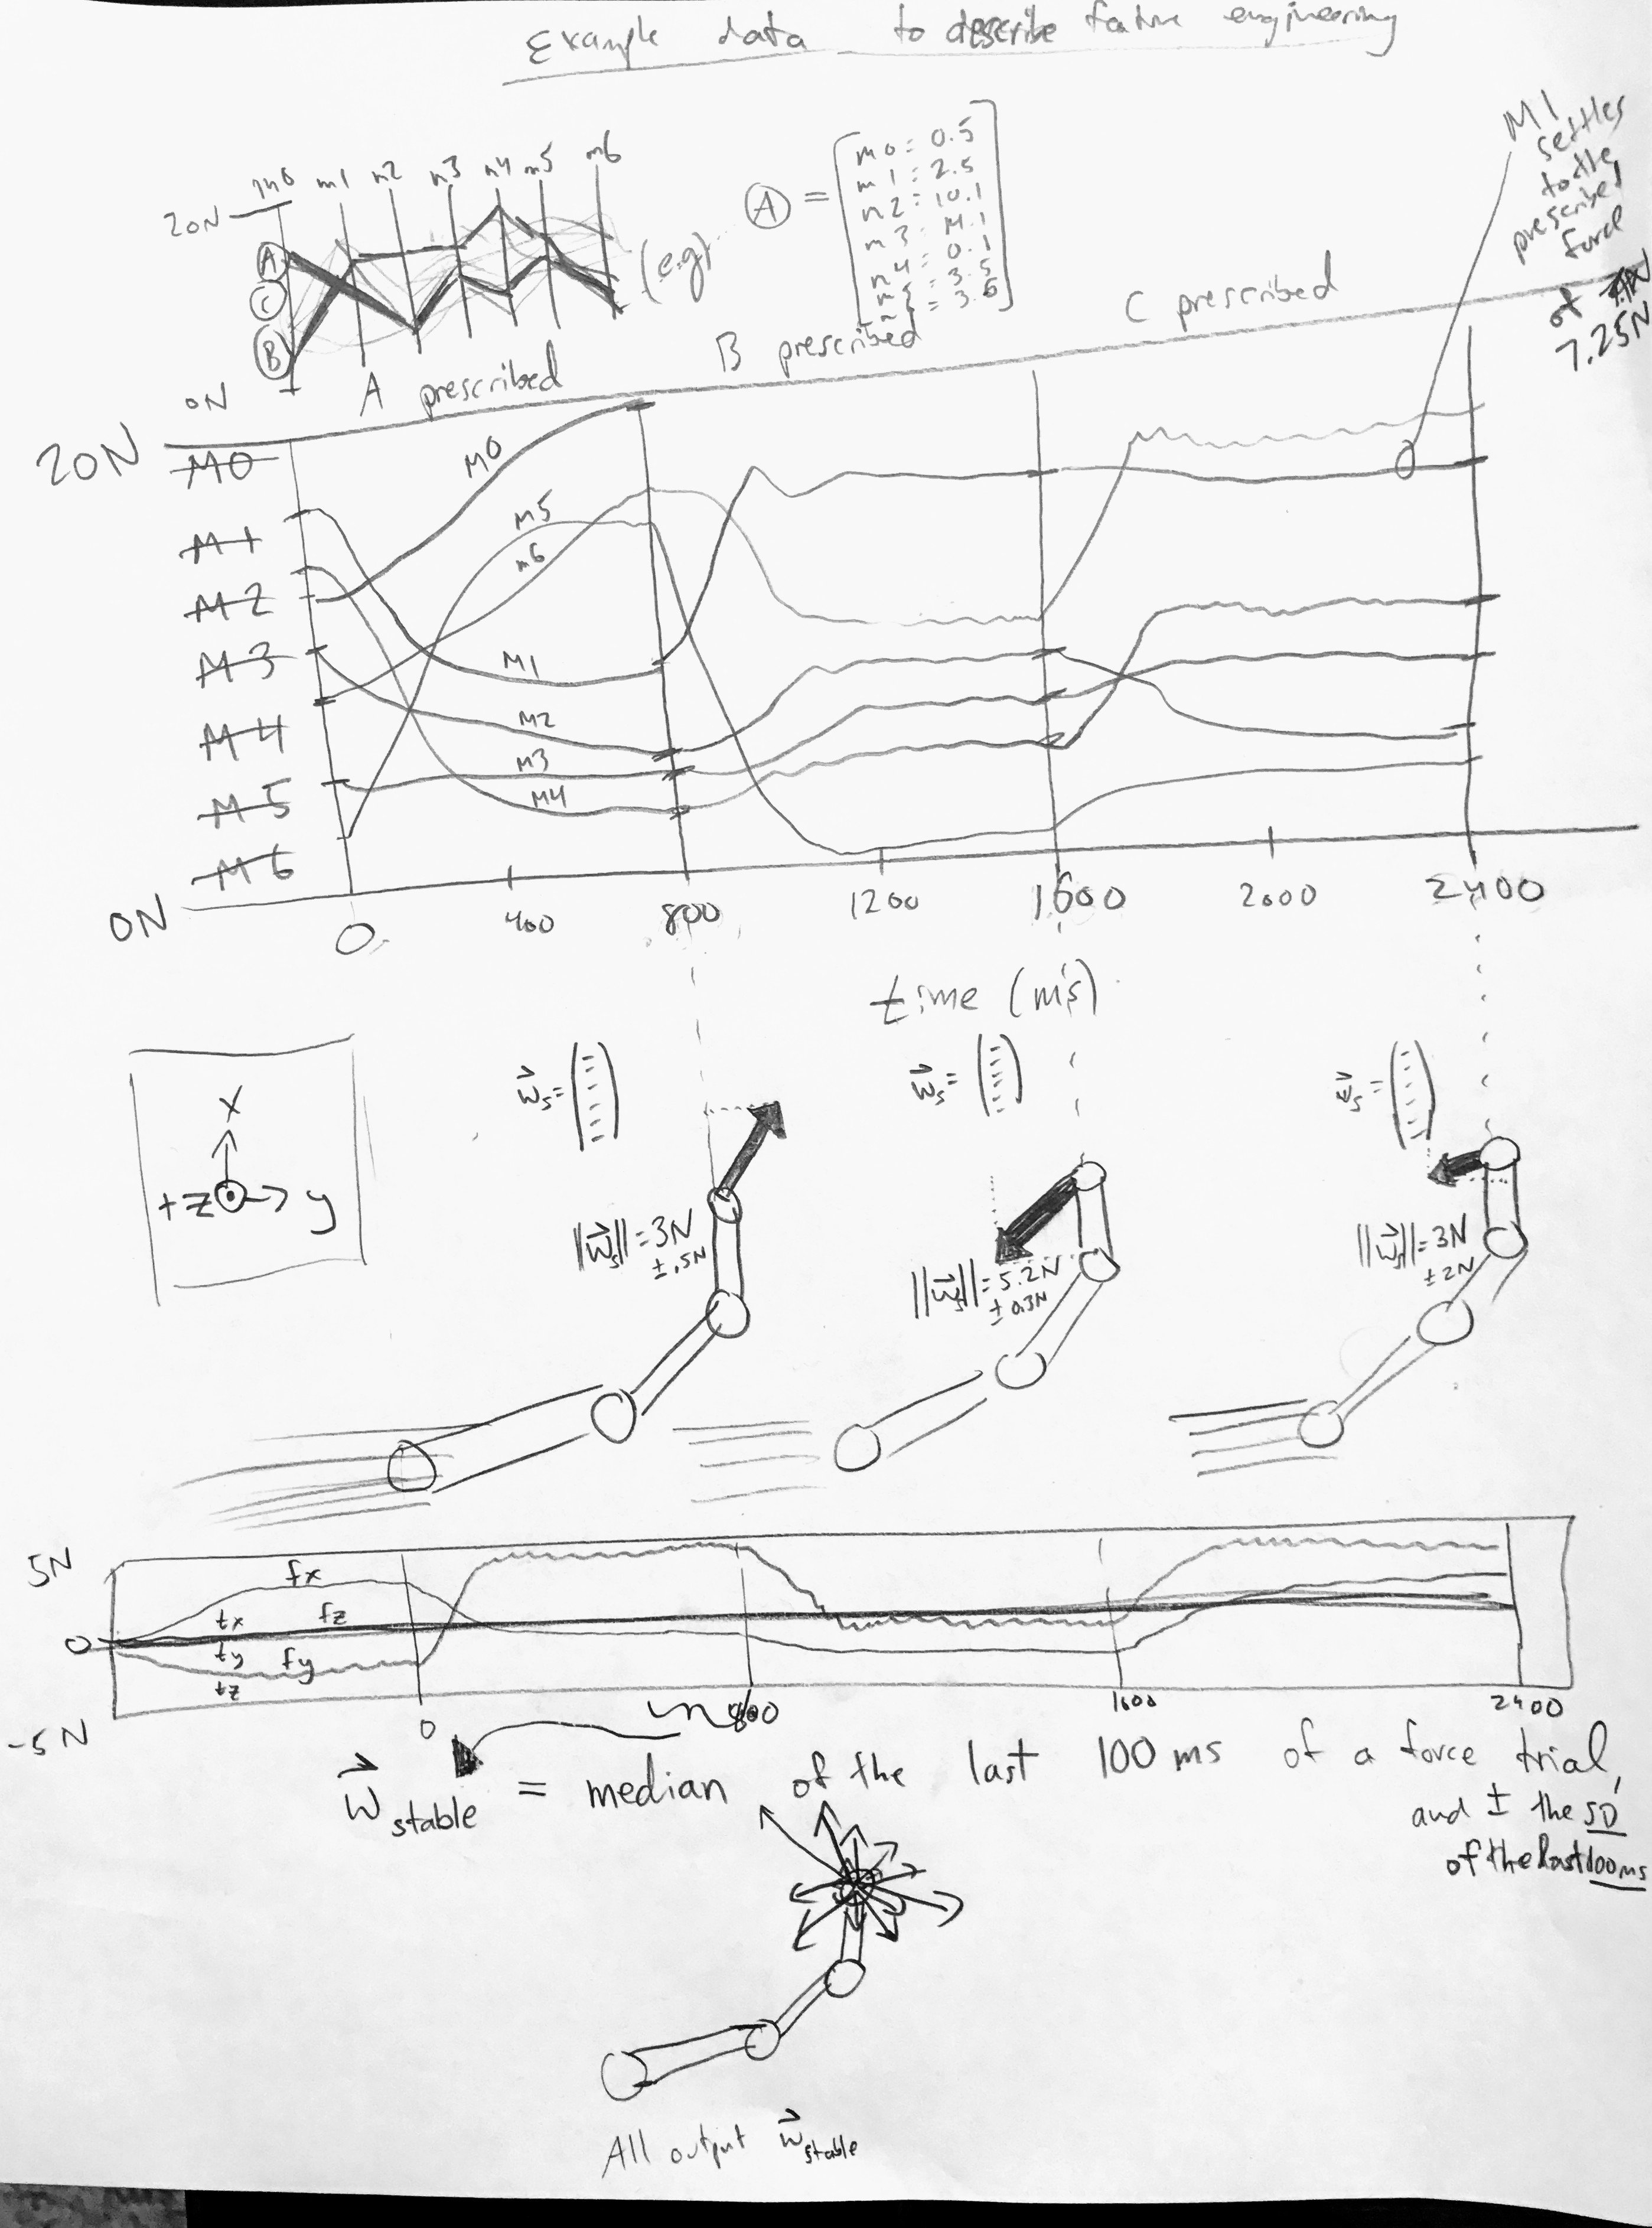 Example data to describe feature engineering
m0 m1 m2 m3 m4 m5 m6
20N
A
C
B
0N
(e.g)
A =
m0 = 0.5
m1 = 2.5
m2 = 10.1
m3 = 14.1
m4 = 0.1
m5 = 3.5
= 3.6
M1
settles
to the
prescribed
force
of
7.25N
A prescribed
B prescribed
C prescribed
20N
M0
M1
M2
M3
M4
M5
M6
0N
M0
M5
m6
M1
M2
M3
M4
0 400 800 1200 1600 2000 2400
time (ms)
X
+z y
w⃗s =
||w⃗s|| = 3N
± .5N
w⃗s =
||w⃗s|| = 5.2N
± 0.3N
w⃗s =
||w⃗s|| = 3N
± 2N
5N
0
-5N
fx
tx fz
ty fy
tz
0 800 1600 2400
w⃗ stable = median of the last 100 ms of a force trial,
and ± the SD
of the last 100 ms
All output w⃗ stable